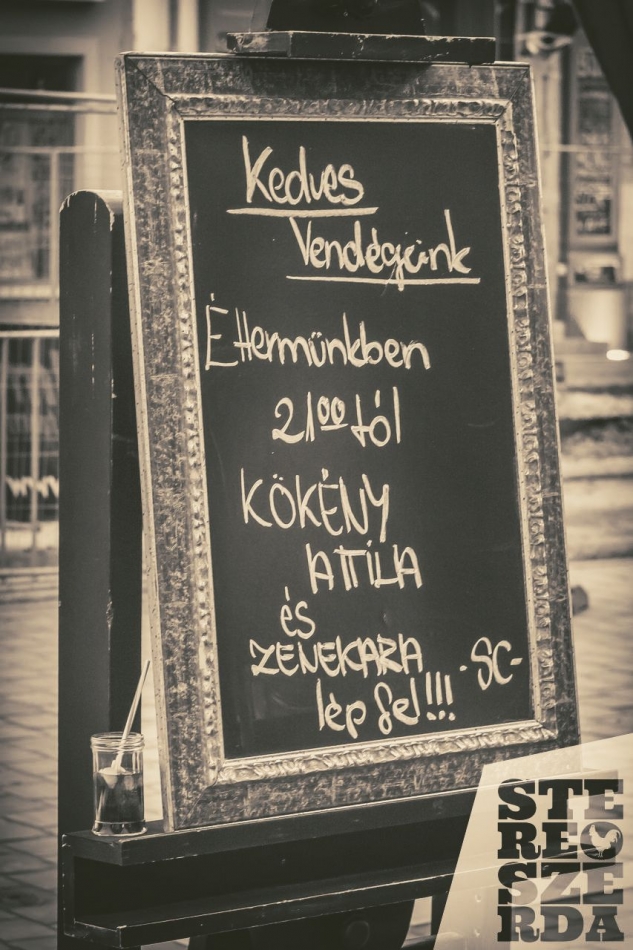 Kedves
Vendégeink
Éttermünkben
21⁰⁰ tól
KÖKÉNY
ATTILA
és
ZENEKARA
-SC-
lép fel!!!
STE
REO
SZE
RDA